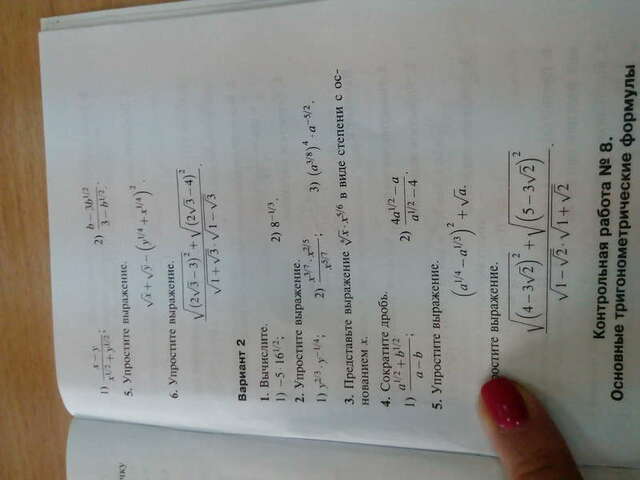 1) \frac{x-y}{x^{1/2}+y^{1/2}}; 2) \frac{b-3b^{1/2}}{3-b^{1/2}}.
5. Упростите выражение.
6. Упростите выражение.
\frac{\sqrt{(2\sqrt{3}-3)^2}+\sqrt{(2\sqrt{3}-4)^2}}{\sqrt{1+\sqrt{3}}\cdot\sqrt{1-\sqrt{3}}}.
Вариант 2
1. Вычислите.
1) -5·16^{1/2}; 2) 8^{-1/3}.
2. Упростите выражение.
1) y^{2/3}·y^{-1/4}; 2) \frac{x^{3/7}·x^{2/5}}{x^{5/7}}; 3) (a^{3/8})^4·a^{-5/2}.
3. Представьте выражение x^{5/6} в виде степени с ос-
нованием x.
4. Сократите дробь.
1) \frac{a^{1/2}+b^{1/2}}{a-b} 2) \frac{4a^{1/2}-a}{a^{1/2}-4}.
5. Упростите выражение.
(a^{1/4}-a^{1/3})^2+\sqrt{a}.
ростите выражение.
\frac{\sqrt{(4-3\sqrt{2})^2}+\sqrt{(5-3\sqrt{2})^2}}{\sqrt{1-\sqrt{2}}\cdot\sqrt{1+\sqrt{2}}}
Контрольная работа № 8.
Основные тригонометрические формулы
чку